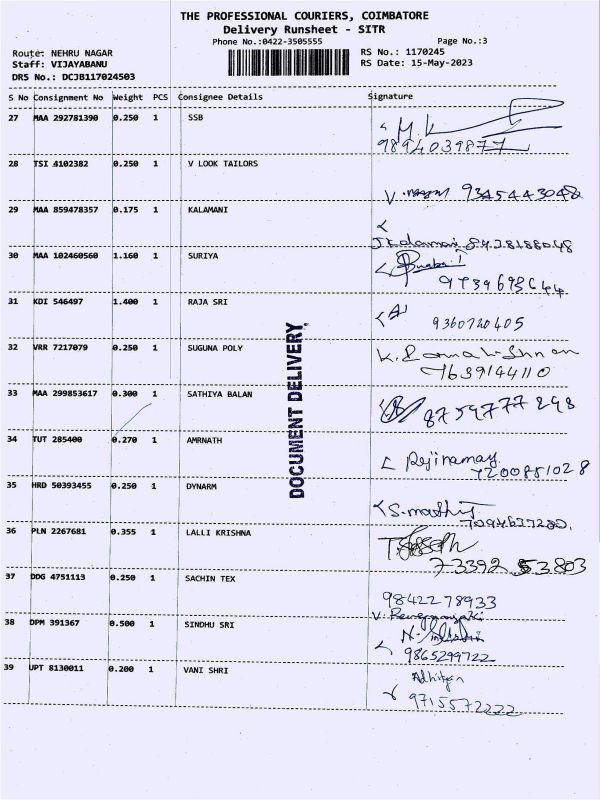 THE PROFESSIONAL COURIERS, COIMBATORE
Delivery Runsheet - SITR
Phone No.:0422-3505555 Page No.:3
Route: NEHRU NAGAR RS No.: 1170245
Staff: VIJAYABANU RS Date: 15-May-2023
DRS No.: DCJB117024503
S No Consignment No Weight PCS Consignee Details Signature
27 MAA 292781390 0.250 1 SSB
M.K
9894039877
28 TSI 4102382 0.250 1 V LOOK TAILORS
9345443048
29 MAA 859478357 0.175 1 KALAMANI
J.Kalamani 8438188048
30 MAA 102460560 1.160 1 SURIYA
31 KDI 546497 1.400 1 RAJA SRI
9360720405
32 VRR 7217079 0.250 1 SUGUNA POLY
7639144110
33 MAA 299853617 0.300 1 SATHIYA BALAN
8759777298
34 TUT 285400 0.270 1 AMRNATH
7200881028
35 HRD 50393455 0.250 1 DYNARM
7094637280
36 PLN 2267681 0.355 1 LALLI KRISHNA
73392 53803
37 DDG 4751113 0.250 1 SACHIN TEX
98422 78933
38 DPM 391367 0.500 1 SINDHU SRI
9865299722
39 UPT 8130011 0.200 1 VANI SHRI
Adhityan
9715572222
DOCUMENT DELIVERY